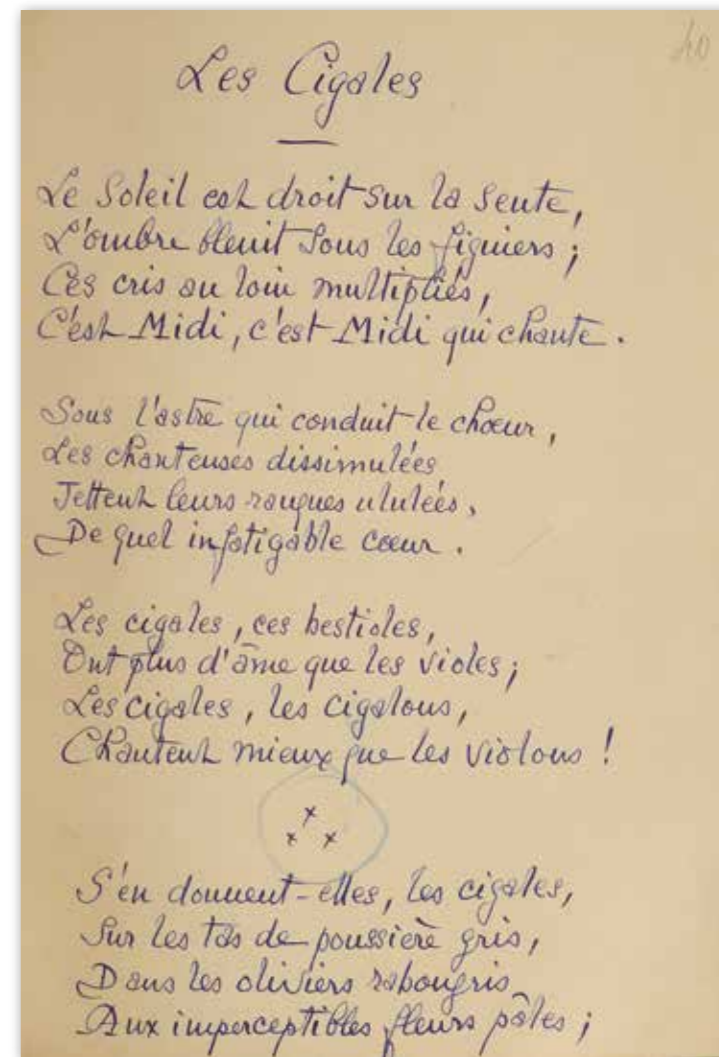 40
Les Cigales
Le Soleil est droit sur la sente,
L'ombre bleuit sous les figuiers ;
Ces cris au loin multipliés,
C'est Midi, c'est Midi qui chante .
Sous l'astre qui conduit le chœur ,
Les chanteuses dissimulées
Jettent leurs rauques ululées ,
De quel infatigable cœur .
Les cigales , ces bestioles,
Ont plus d'âme que les violes ;
Les cigales , les cigalons,
Chantent mieux que les violons !
x
x x
S'en donnent-elles, les cigales,
Sur les tas de poussière gris,
Dans les oliviers rabougris
Aux imperceptibles fleurs pâles ;